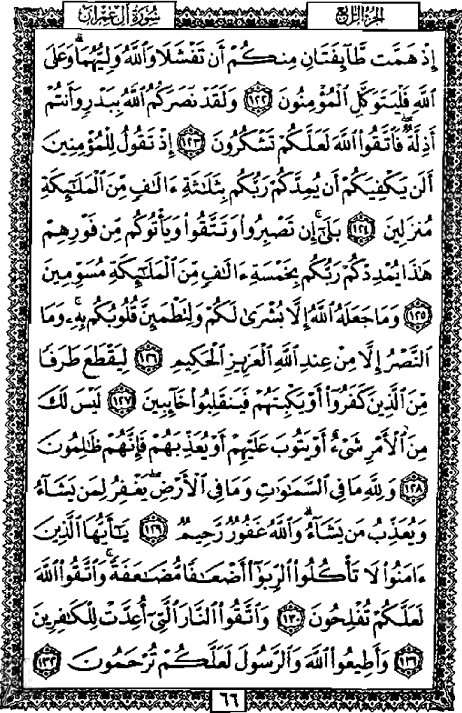 الجزء الرابع
سورة آل عمران
إِذْ هَمَّت طَّآئِفَتَانِ مِنكُمْ أَن تَفْشَلَا وَٱللَّهُ وَلِيُّهُمَا ۗ وَعَلَى
ٱللَّهِ فَلْيَتَوَكَّلِ ٱلْمُؤْمِنُونَ ١٢٢ وَلَقَدْ نَصَرَكُمُ ٱللَّهُ بِبَدْرٍ وَأَنتُمْ
أَذِلَّةٌ ۖ فَٱتَّقُوا۟ ٱللَّهَ لَعَلَّكُمْ تَشْكُرُونَ ١٢٣ إِذْ تَقُولُ لِلْمُؤْمِنِينَ
أَلَن يَكْفِيَكُمْ أَن يُمِدَّكُمْ رَبُّكُم بِثَلَـٰثَةِ ءَالَـٰفٍ مِّنَ ٱلْمَلَـٰٓئِكَةِ
مُنزَلِينَ ١٢٤ بَلَىٰٓ ۚ إِن تَصْبِرُوا۟ وَتَتَّقُوا۟ وَيَأْتُوكُم مِّن فَوْرِهِمْ
هَـٰذَا يُمْدِدْكُمْ رَبُّكُم بِخَمْسَةِ ءَالَـٰفٍ مِّنَ ٱلْمَلَـٰٓئِكَةِ مُسَوِّمِينَ
١٢٥ وَمَا جَعَلَهُ ٱللَّهُ إِلَّا بُشْرَىٰ لَكُمْ وَلِتَطْمَئِنَّ قُلُوبُكُم بِهِۦ ۗ وَمَا
ٱلنَّصْرُ إِلَّا مِنْ عِندِ ٱللَّهِ ٱلْعَزِيزِ ٱلْحَكِيمِ ١٢٦ لِيَقْطَعَ طَرَفًا
مِّنَ ٱلَّذِينَ كَفَرُوٓا۟ أَوْ يَكْبِتَهُمْ فَيَنقَلِبُوا۟ خَآئِبِينَ ١٢٧ لَيْسَ لَكَ
مِنَ ٱلْأَمْرِ شَىْءٌ أَوْ يَتُوبَ عَلَيْهِمْ أَوْ يُعَذِّبَهُمْ فَإِنَّهُمْ ظَـٰلِمُونَ
١٢٨ وَلِلَّهِ مَا فِى ٱلسَّمَـٰوَٰتِ وَمَا فِى ٱلْأَرْضِ ۚ يَغْفِرُ لِمَن يَشَآءُ
وَيُعَذِّبُ مَن يَشَآءُ ۚ وَٱللَّهُ غَفُورٌ رَّحِيمٌ ١٢٩ يَـٰٓأَيُّهَا ٱلَّذِينَ
ءَامَنُوا۟ لَا تَأْكُلُوا۟ ٱلرِّبَوٰٓا۟ أَضْعَـٰفًا مُّضَـٰعَفَةً ۖ وَٱتَّقُوا۟ ٱللَّهَ
لَعَلَّكُمْ تُفْلِحُونَ ١٣٠ وَٱتَّقُوا۟ ٱلنَّارَ ٱلَّتِىٓ أُعِدَّتْ لِلْكَـٰفِرِينَ
١٣١ وَأَطِيعُوا۟ ٱللَّهَ وَٱلرَّسُولَ لَعَلَّكُمْ تُرْحَمُونَ ١٣٢
٦٦